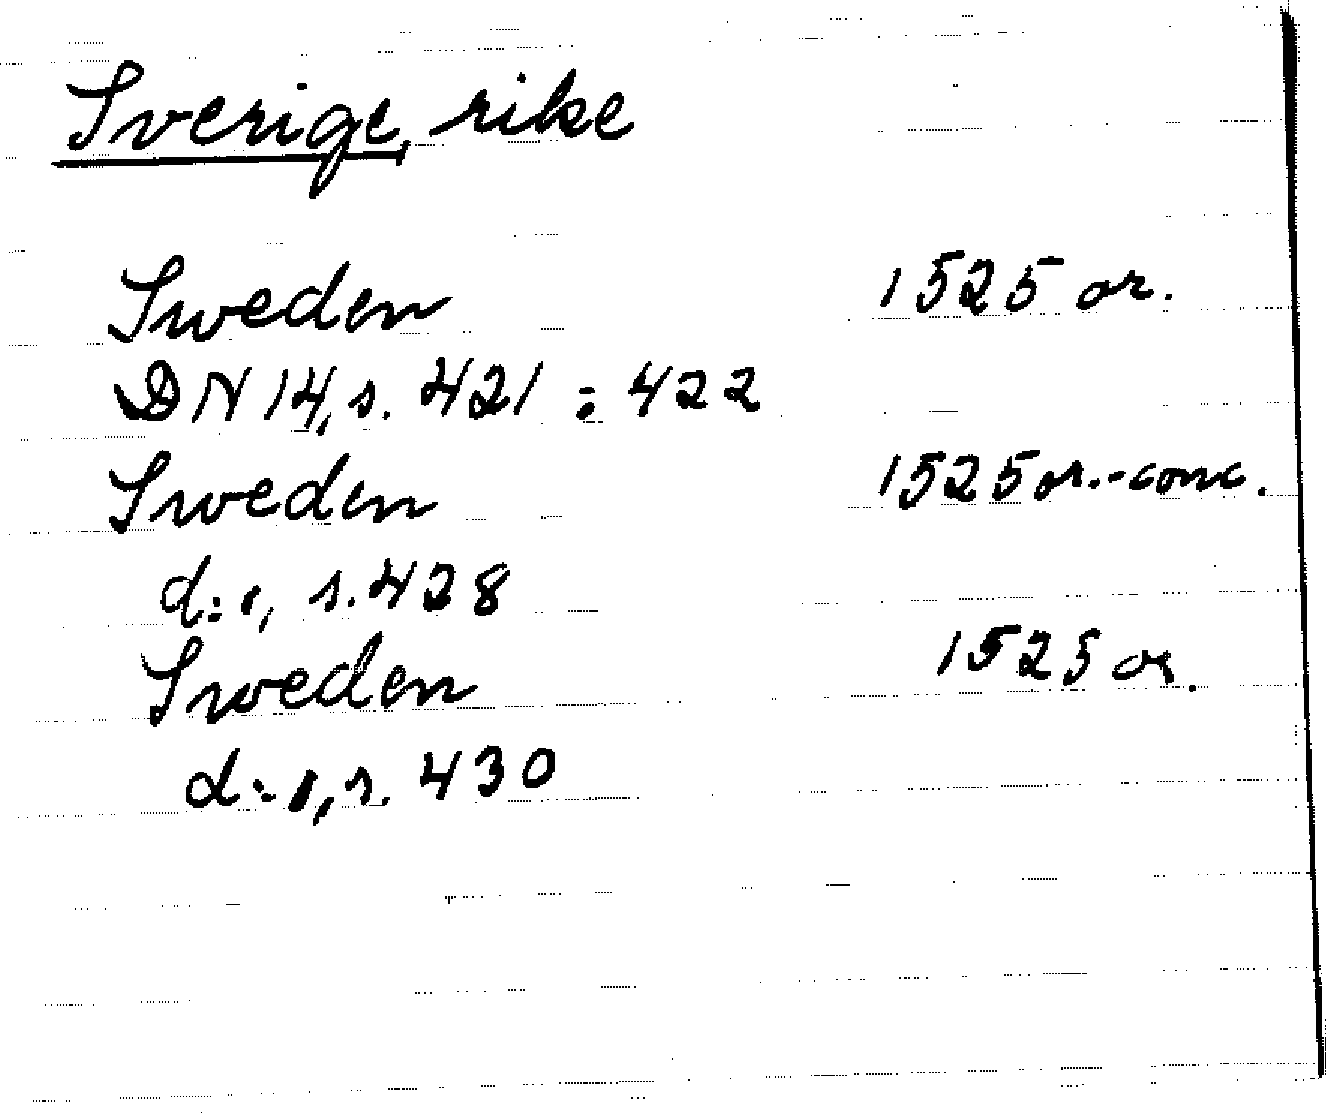 Sverige, rike
Sweden 1525 or.
DN 14, s. 421 : 422
Sweden 1525 or.-conc.
d:o, s. 428
Sweden 1525 or.
d:o, s. 430